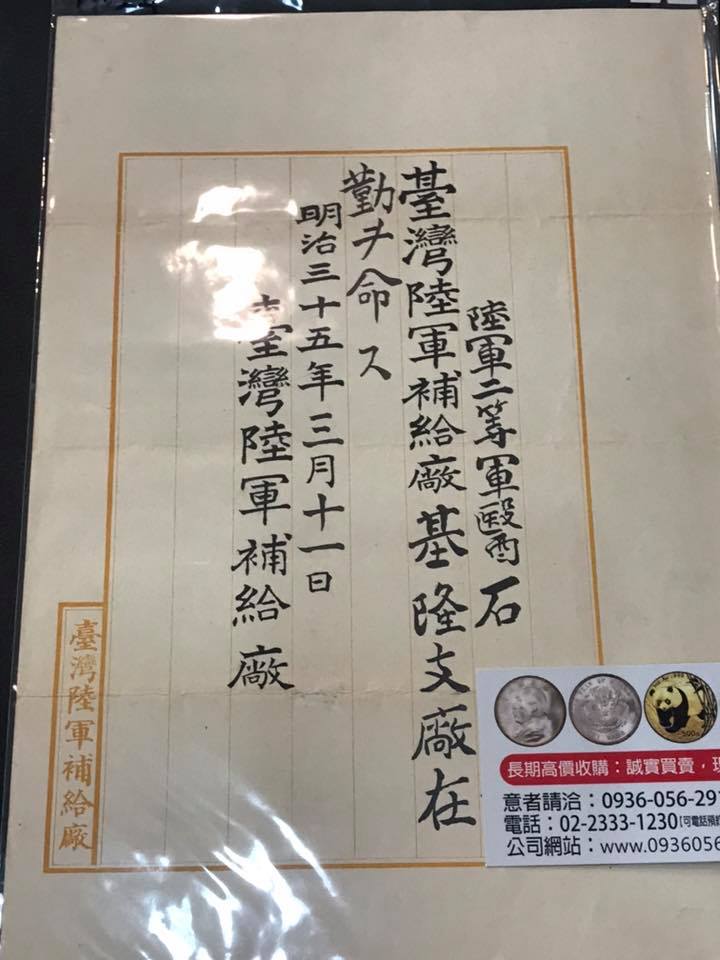 陸軍二等軍醫 石
臺灣陸軍補給廠基隆支廠在
勤ヲ命ス
明治三十五年三月十一日
臺灣陸軍補給廠
臺灣陸軍補給廠
長期高價收購：誠實買賣，現
意者請洽：0936-056-29
電話：02-2333-1230【可電話預約
公司網站：www.0936056